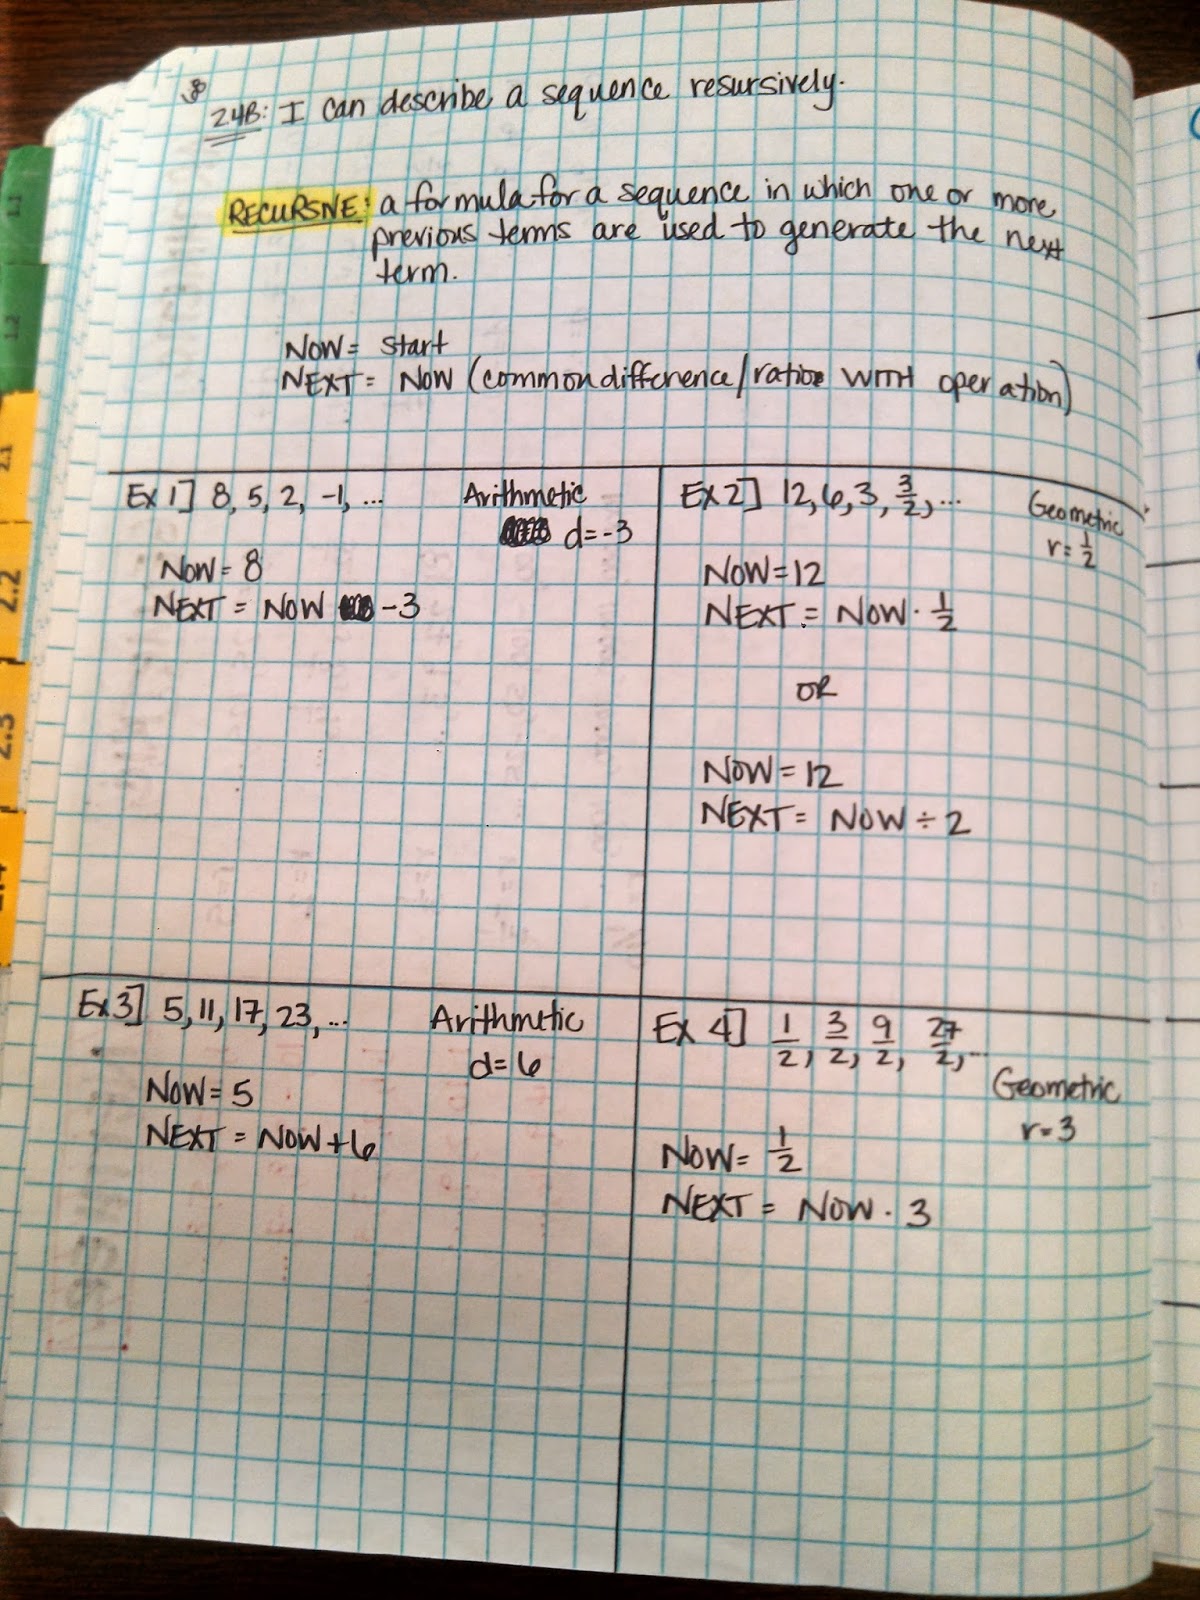 8
24B: I can describe a sequence resursively.
RECURSIVE: a formula for a sequence in which one or more
previous terms are used to generate the next
term.
NOW = start
NEXT = NOW (common difference/ratio WITH operation)
Ex 1] 8, 5, 2, -1, ... Arithmetic
d=-3
NOW = 8
NEXT = NOW -3
Ex 2] 12, 6, 3, 3/2, ... Geometric
r= 1/2
NOW = 12
NEXT = NOW · 1/2
OR
NOW = 12
NEXT = NOW ÷ 2
Ex 3] 5, 11, 17, 23, ... Arithmetic
d=6
NOW = 5
NEXT = NOW+6
Ex 4] 1/2, 3/2, 9/2, 27/2, ...
Geometric
r=3
NOW = 1/2
NEXT = NOW · 3
1.1
1.2
2.1
2.2
2.3